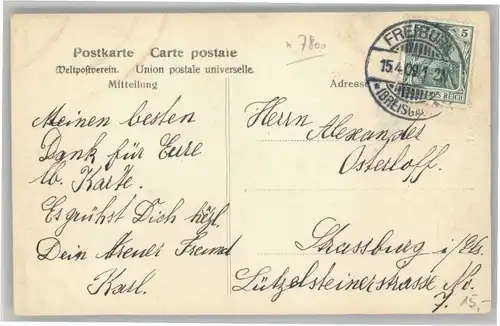 * 7800
Postkarte Carte postale
Weltpostverein. Union postale universelle.
Mitteilung
Adresse
FREIBURG
15.4.09.1-2N.
* (BREISGAU)
5
REICH
Meinen besten
Dank für Eure
lb. Karte.
Es grühst Dich hzl.
Dein treuer Freund
Karl.
Herrn Alexander
Osterloff.
Strassburg i/Els.
Lützelsteinerstrasse No.
7.
15,-